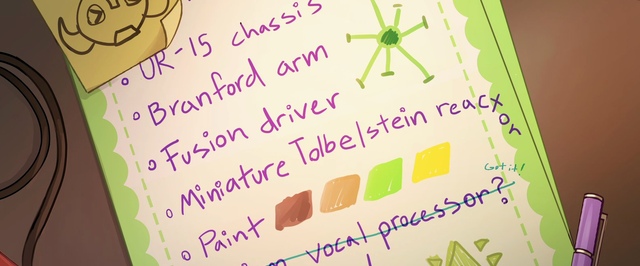 UR-15 chassis
Branford arm
Fusion driver
Miniature Tolbelstein reactor
Got it!
Paint
vocal processor?